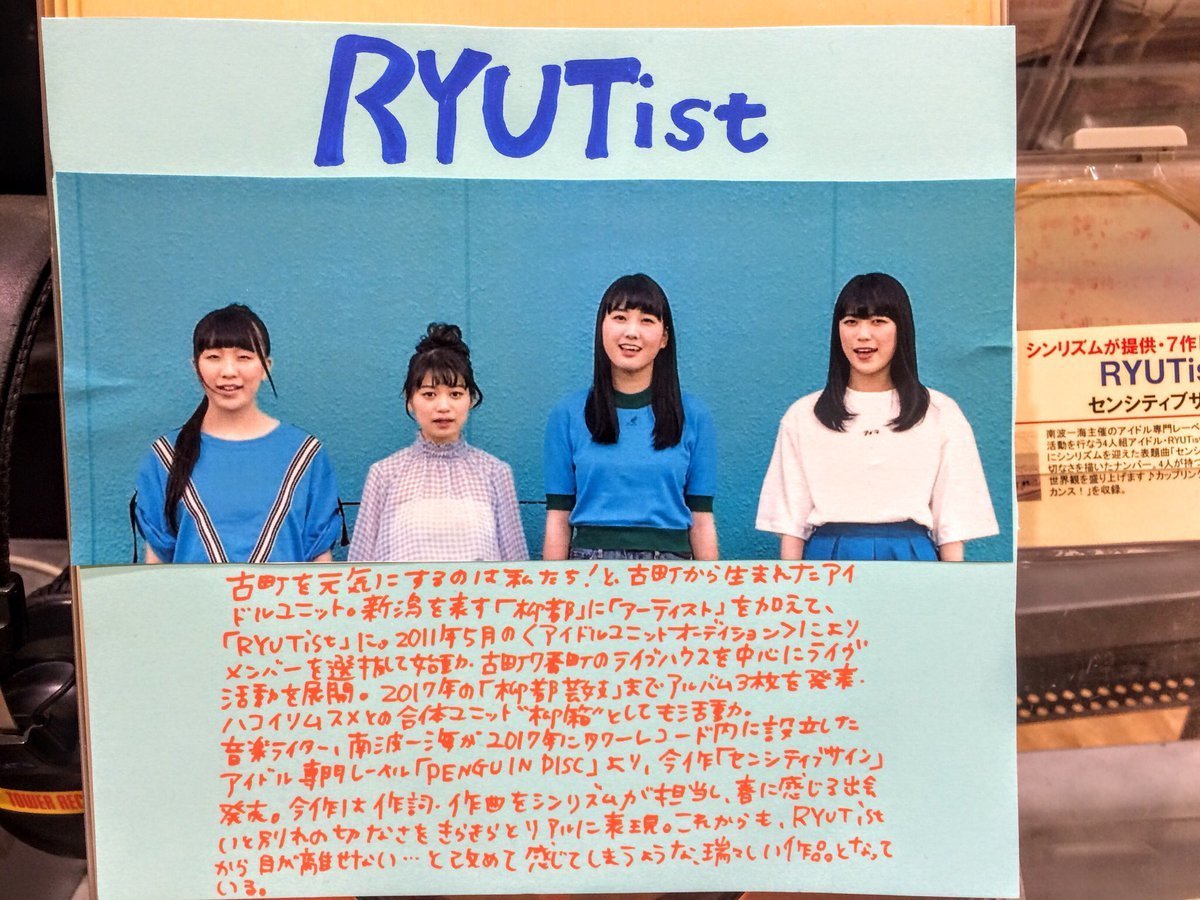 RYUTist
古町を元気にするのは私たち!と、古町から生まれたアイ
ドルユニット。新潟を表す「柳都」に「アーティスト」を加えて、
「RYUTist」に。2011年5月の〈アイドルユニットオーディション〉により
メンバーを選抜して始動。古町7番町のライブハウスを中心にライヴ
活動を展開。2017年の「柳都芸妓」までアルバム3枚を発表。
ハコイリムスメとの合体ユニット"柳箱"としても活動。
音楽ライター、南波一海が2017年にタワーレコード内に設立した
アイドル専門レーベル「PENGUIN DISC」より、今作「センシティブサイン」
発表。今作は作詞・作曲をシンリズムが担当し、春に感じる出会
いと別れの切なさをきらきらとリアルに表現。これからも、RYUTist
から目が離せない…と改めて感じてしまうような、瑞々しい作品となって
いる。
シンリズムが提供・7作
RYUTis
センシティブサ
南波一海主催のアイドル専門レーベ
活動を行なう4人組アイドル・RYUTis
にシンリズムを迎えた表題曲「センシ
切なさを描いたナンバー。4人が持つ
世界観を盛り上げます♪カップリン
カンス!」を収録。
TOWER REC